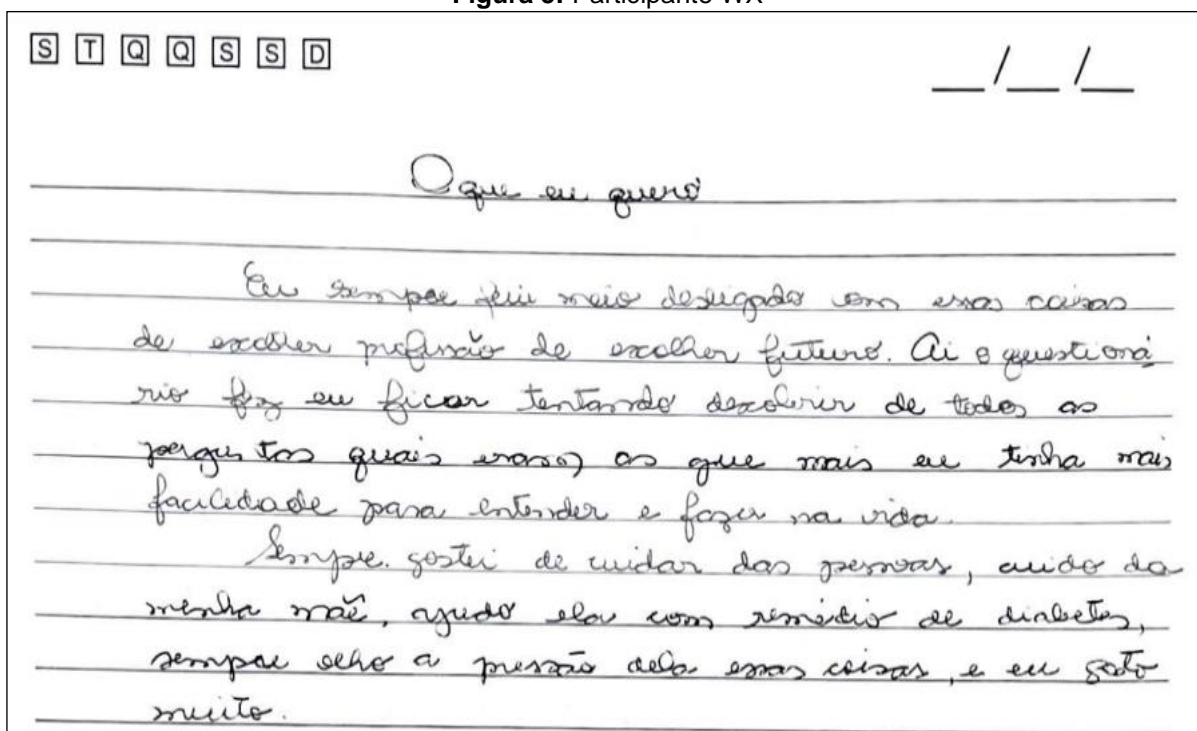 Figura 3. Participante WX
S T Q Q S S D
__/__/__
O que eu quero
Eu sempre fui meio desligado com essas coisas
de escolher profissão de escolher futuro. Ai o questioná
rio fez eu ficar tentando descobrir de todas as
perguntas quais eram as que mais eu tinha mais
facilidade para entender e fazer na vida.
Sempre gostei de cuidar das pessoas, cuido da
minha mãe, ajudo ela com remédio de diabetes,
sempre olho a pressão dela essas coisas, e eu gosto
muito.